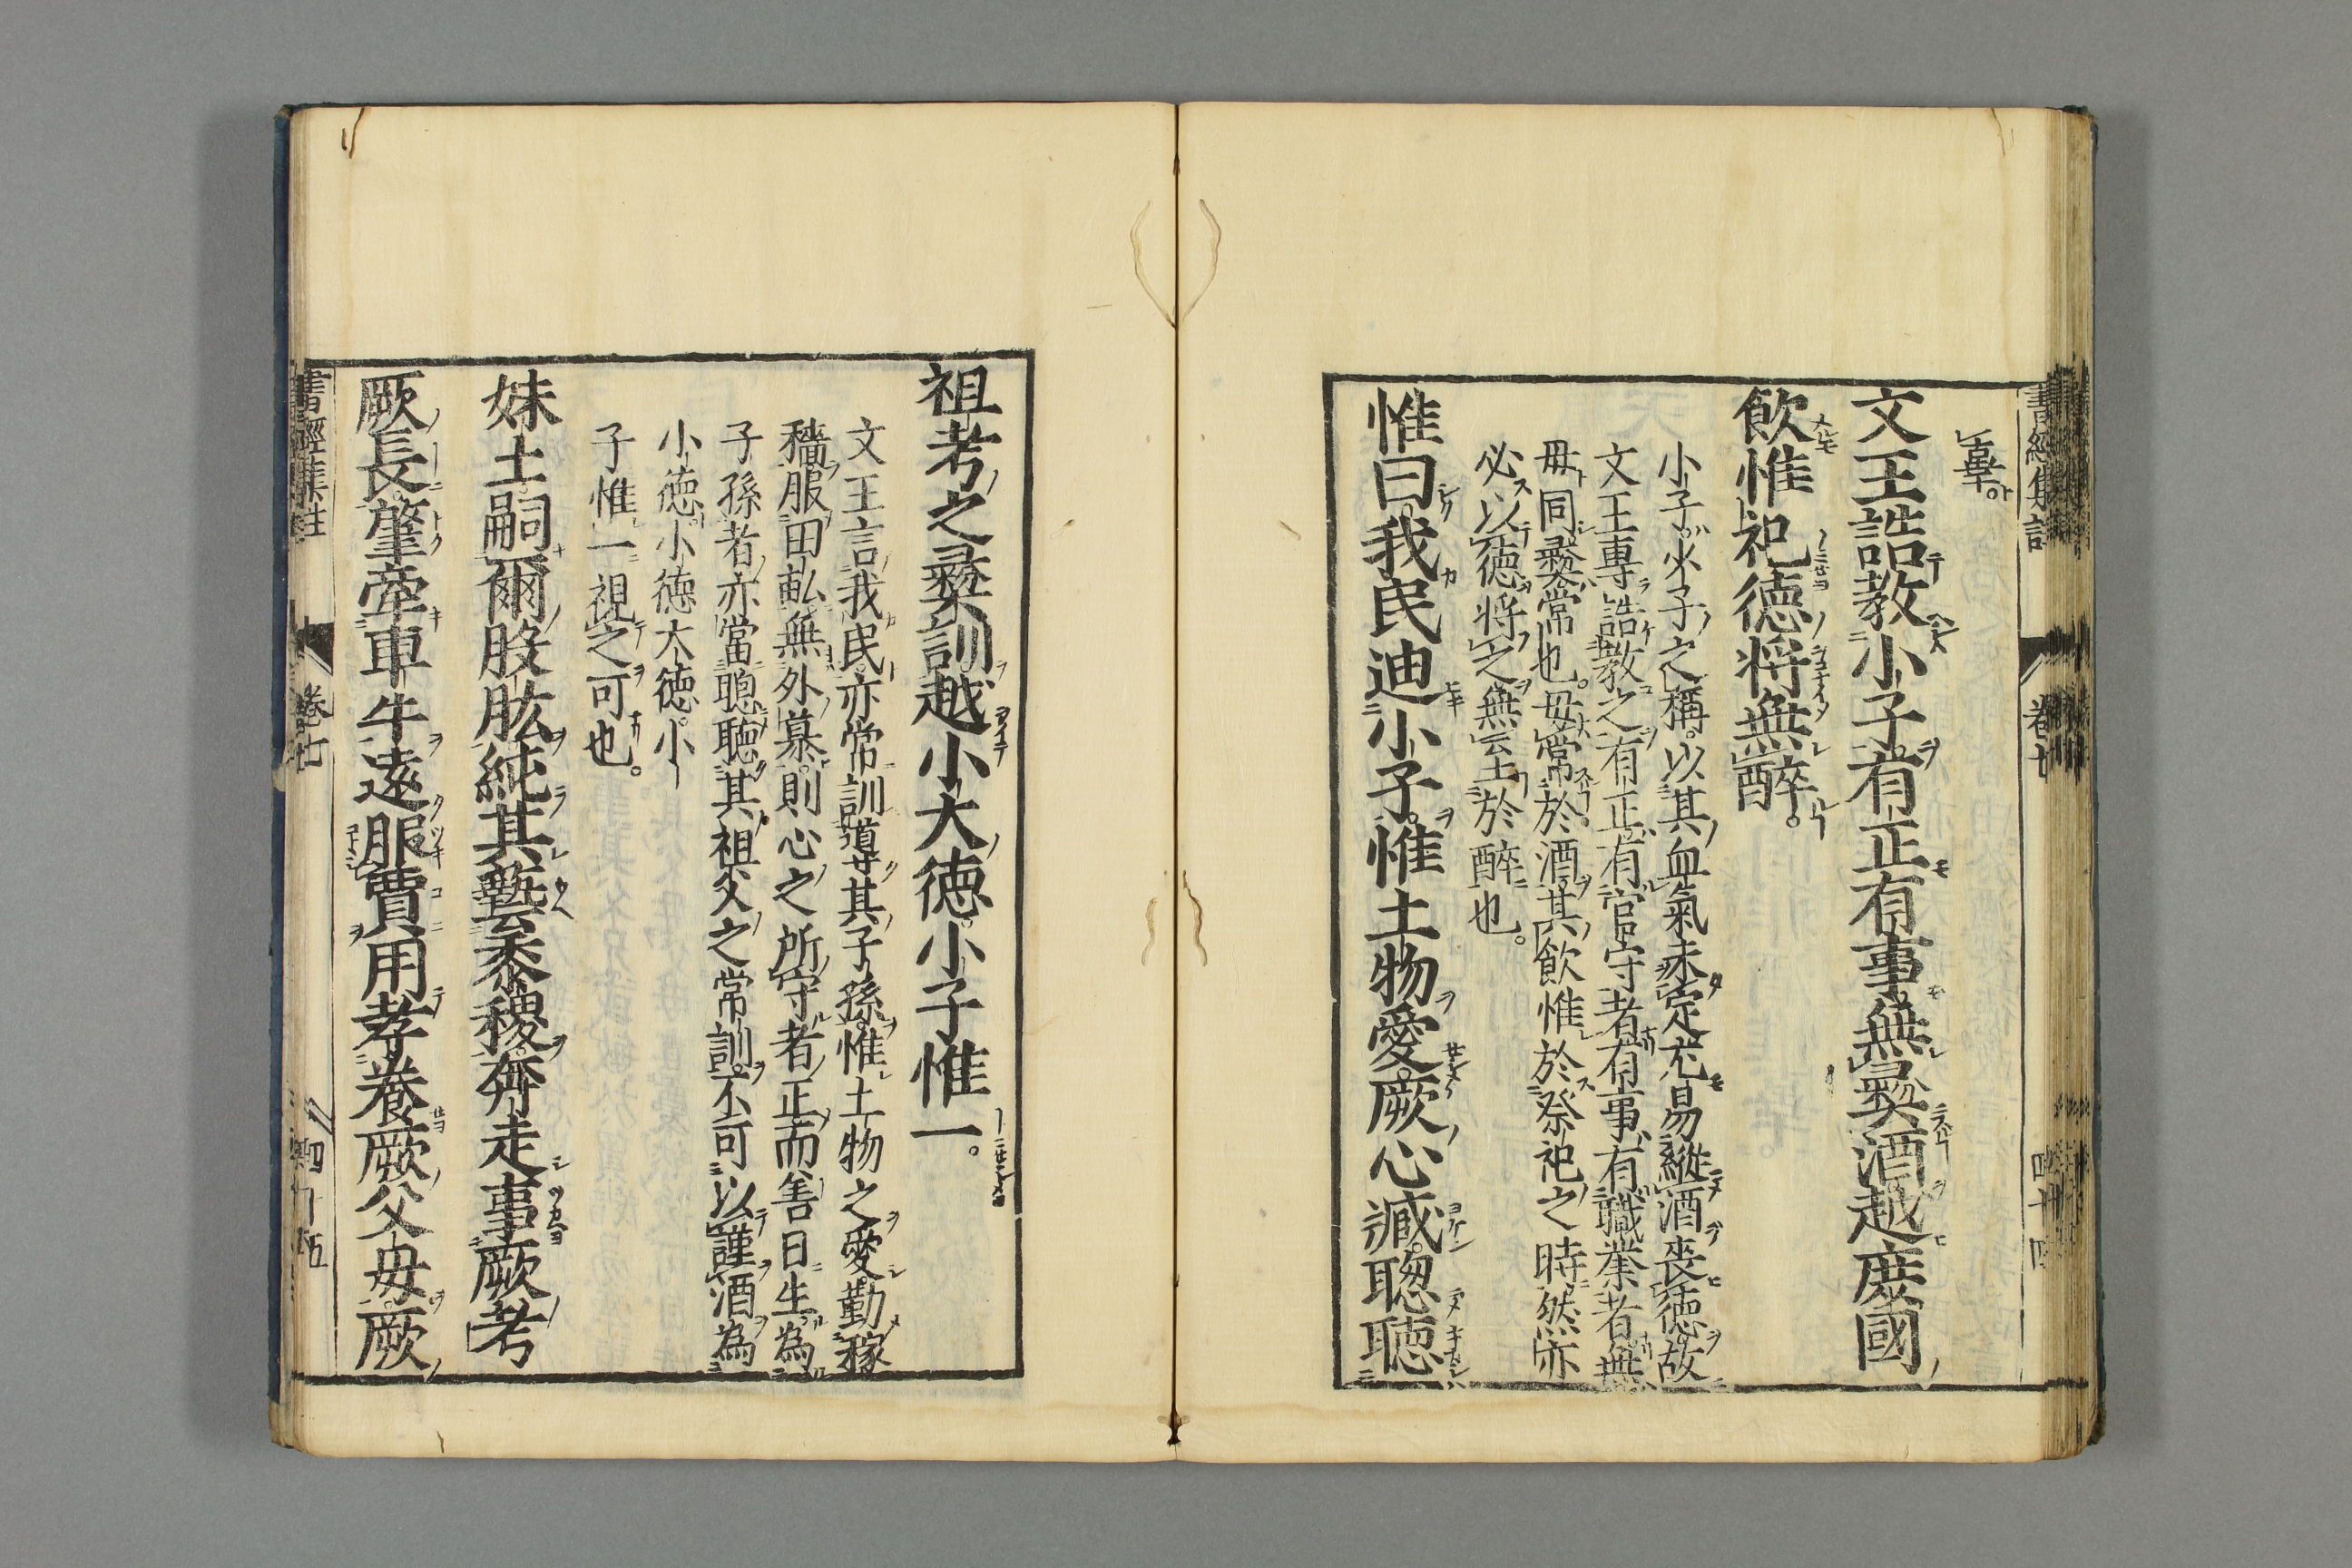 辜。
文王誥教小子。有正有事。無彛酒越。庶國
飲惟祀。徳将無醉。
小子。少子之稱。以其血氣未定。尤易縱酒喪徳。故
文王專誥教之。有正。有官守者。有事。有職業者。無
毋同。彛常也。毋常於酒。其飲惟於祭祀之時。然亦
必以徳将之。無至於醉也。
惟曰。我民迪小子。惟土物愛。厥心臧。聰聴
祖考之彛訓。越小大徳。小子惟一。
文王言。我民亦常訓導其子孫。惟土物之愛。勤稼
穡。服田畝。無外慕。則心之所守者正。而善日生。為
子孫者。亦當聰聴其祖父之常訓。不可以謹酒為
小徳。小徳大徳。小
子惟一視之可也。
妹土嗣爾股肱。純其藝黍稷。奔走事厥考
厥長。肇牽車牛。遠服賈。用孝養厥父母。厥
書經集註
卷七
四十四
書經集註
卷七
四十五